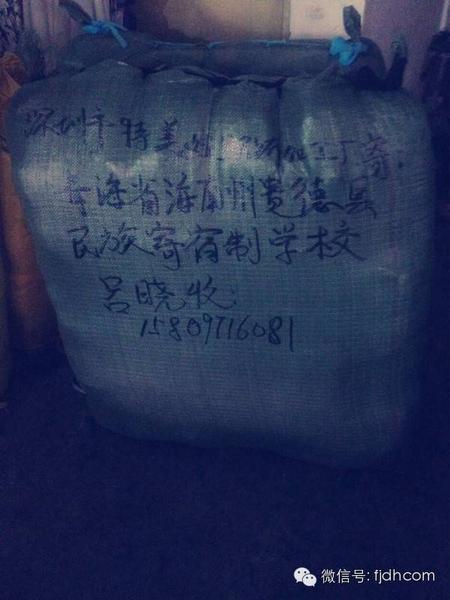 深圳市特美 工厂寄.
青海省海南州贵德县
民族寄宿制学校
吕晓收:
15809716081
微信号: fjdhcom